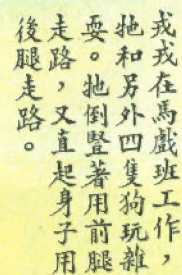 戎戎在馬戲班工作，
牠和另外四隻狗玩雜
耍。牠倒豎著用前腿
走路，又直起身子用
後腿走路。